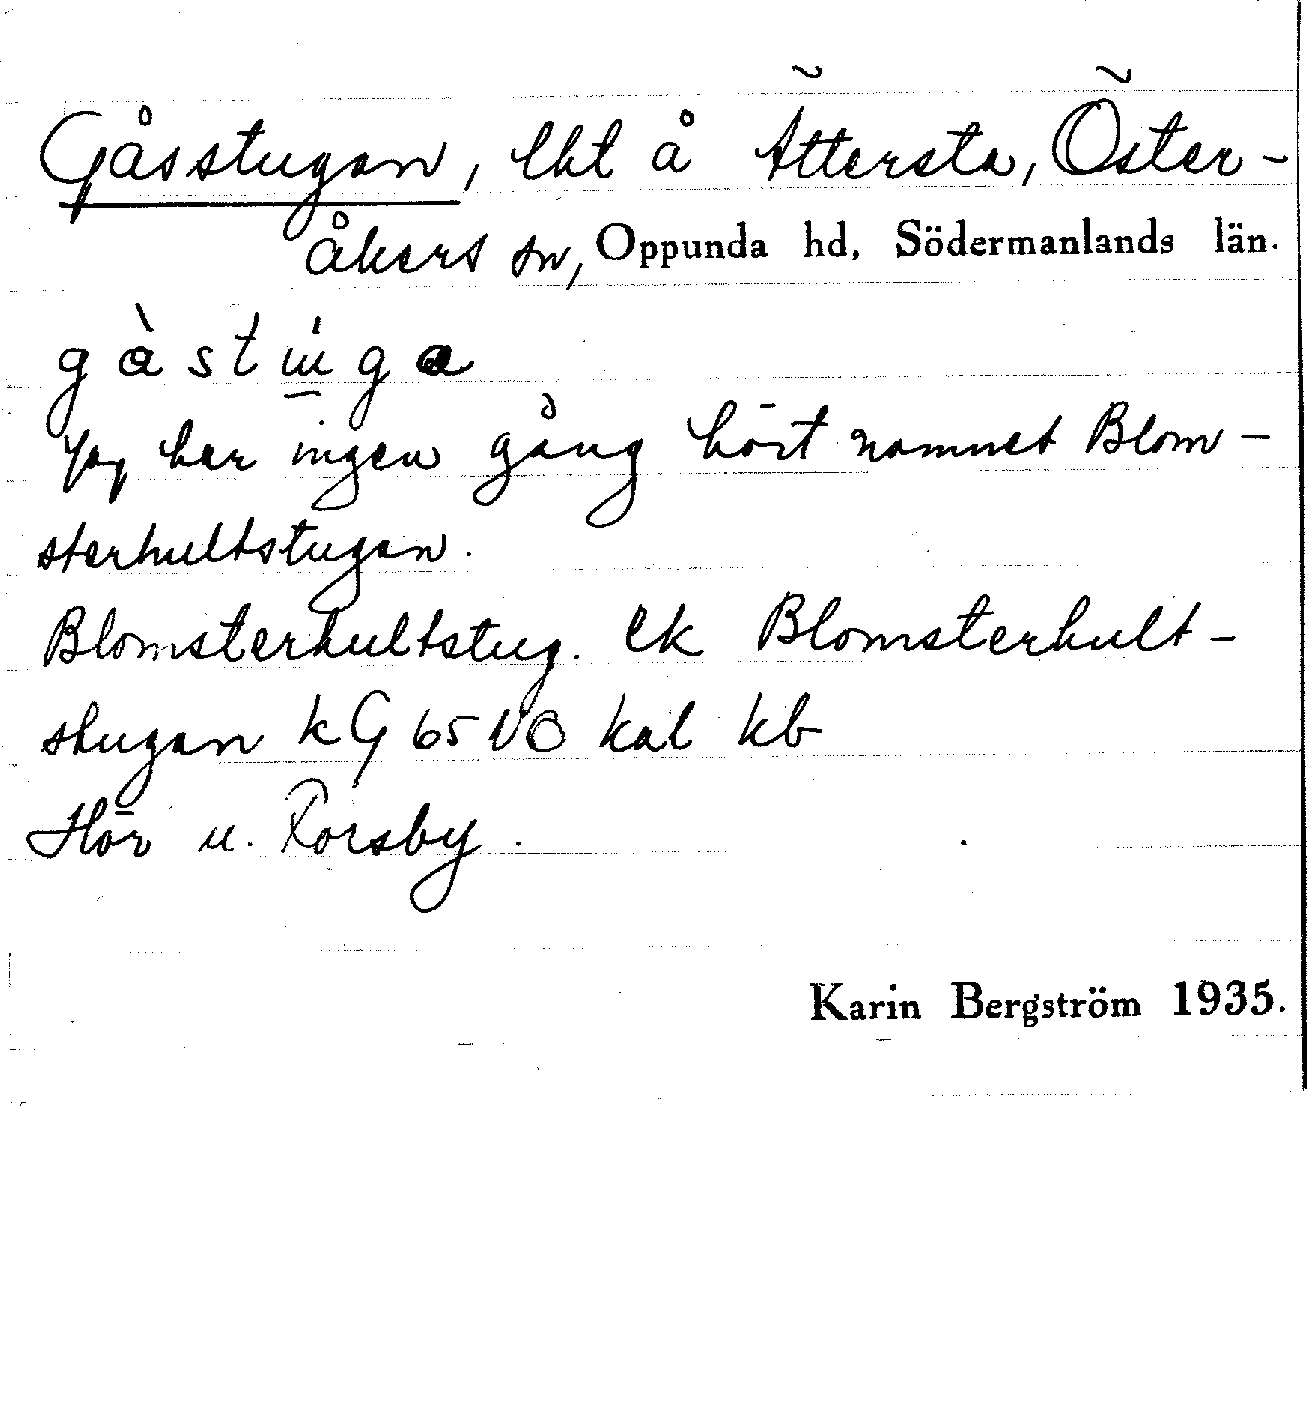 Gåsstugan, lht å Ättersta, Öster-
åkers sn, Oppunda hd, Södermanlands län.
Jag har ingen gång hört namnet Blom-
sterhultstugan.
Blomsterhultstug. ek Blomsterhult-
stugan kG 65 NO kal kb
Hör u. Forsby.
Karin Bergström 1935.